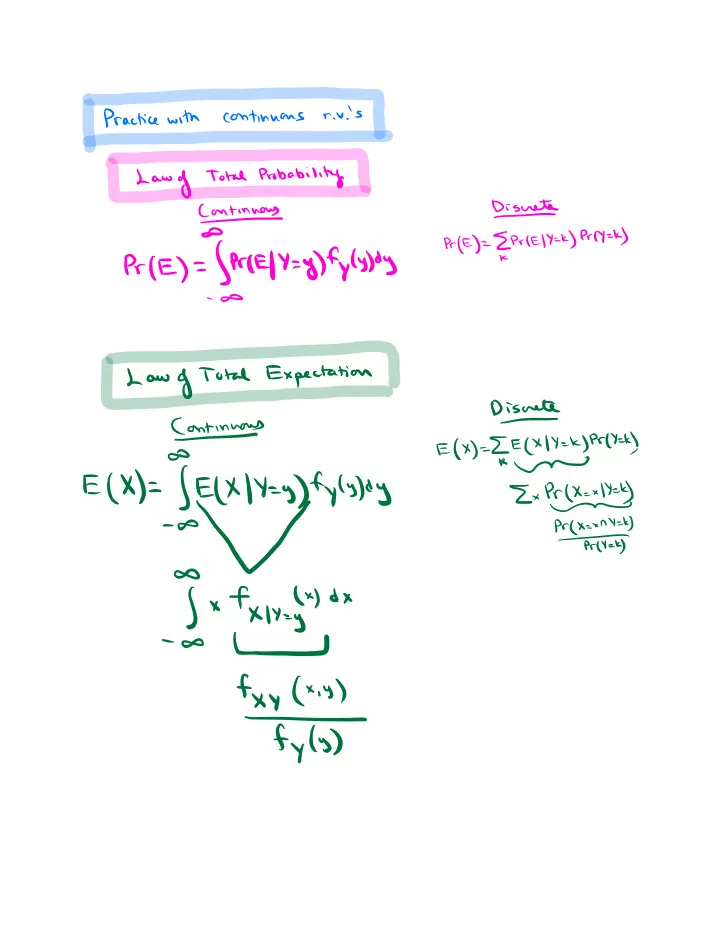 Practice with continuous r.v.'s
Law of Total Probability
Continuous
Pr(E) = ∫_{-∞}^{∞} Pr(E|Y=y) f_Y(y) dy
Discrete
Pr(E) = Σ_k Pr(E|Y=k) Pr(Y=k)
Law of Total Expectation
Continuous
E(X) = ∫_{-∞}^{∞} E(X|Y=y) f_Y(y) dy
∫_{-∞}^{∞} x f_{X|Y=y}(x) dx
f_{XY}(x,y)
f_Y(y)
Discrete
E(X) = Σ_k E(X|Y=k) Pr(Y=k)
Σ x Pr(X=x|Y=k)
Pr(X=x ∩ Y=k)
Pr(Y=k)